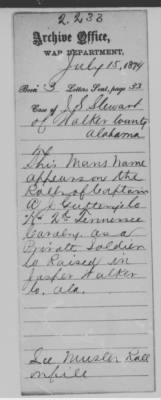 2.233
Archive Office,
WAR DEPARTMENT,
July 15, 1874
Book 3 Letters Sent, page 33
Case of J S Stewart
of Walker County
Alabama
This Mans Name
Appears on the
Rolls of Captain
A. J.
Tennessee
Cavalry as a
Private Soldier
Co Raised in
Jasper Walker
Co, Ala.
See Muster Roll
on file